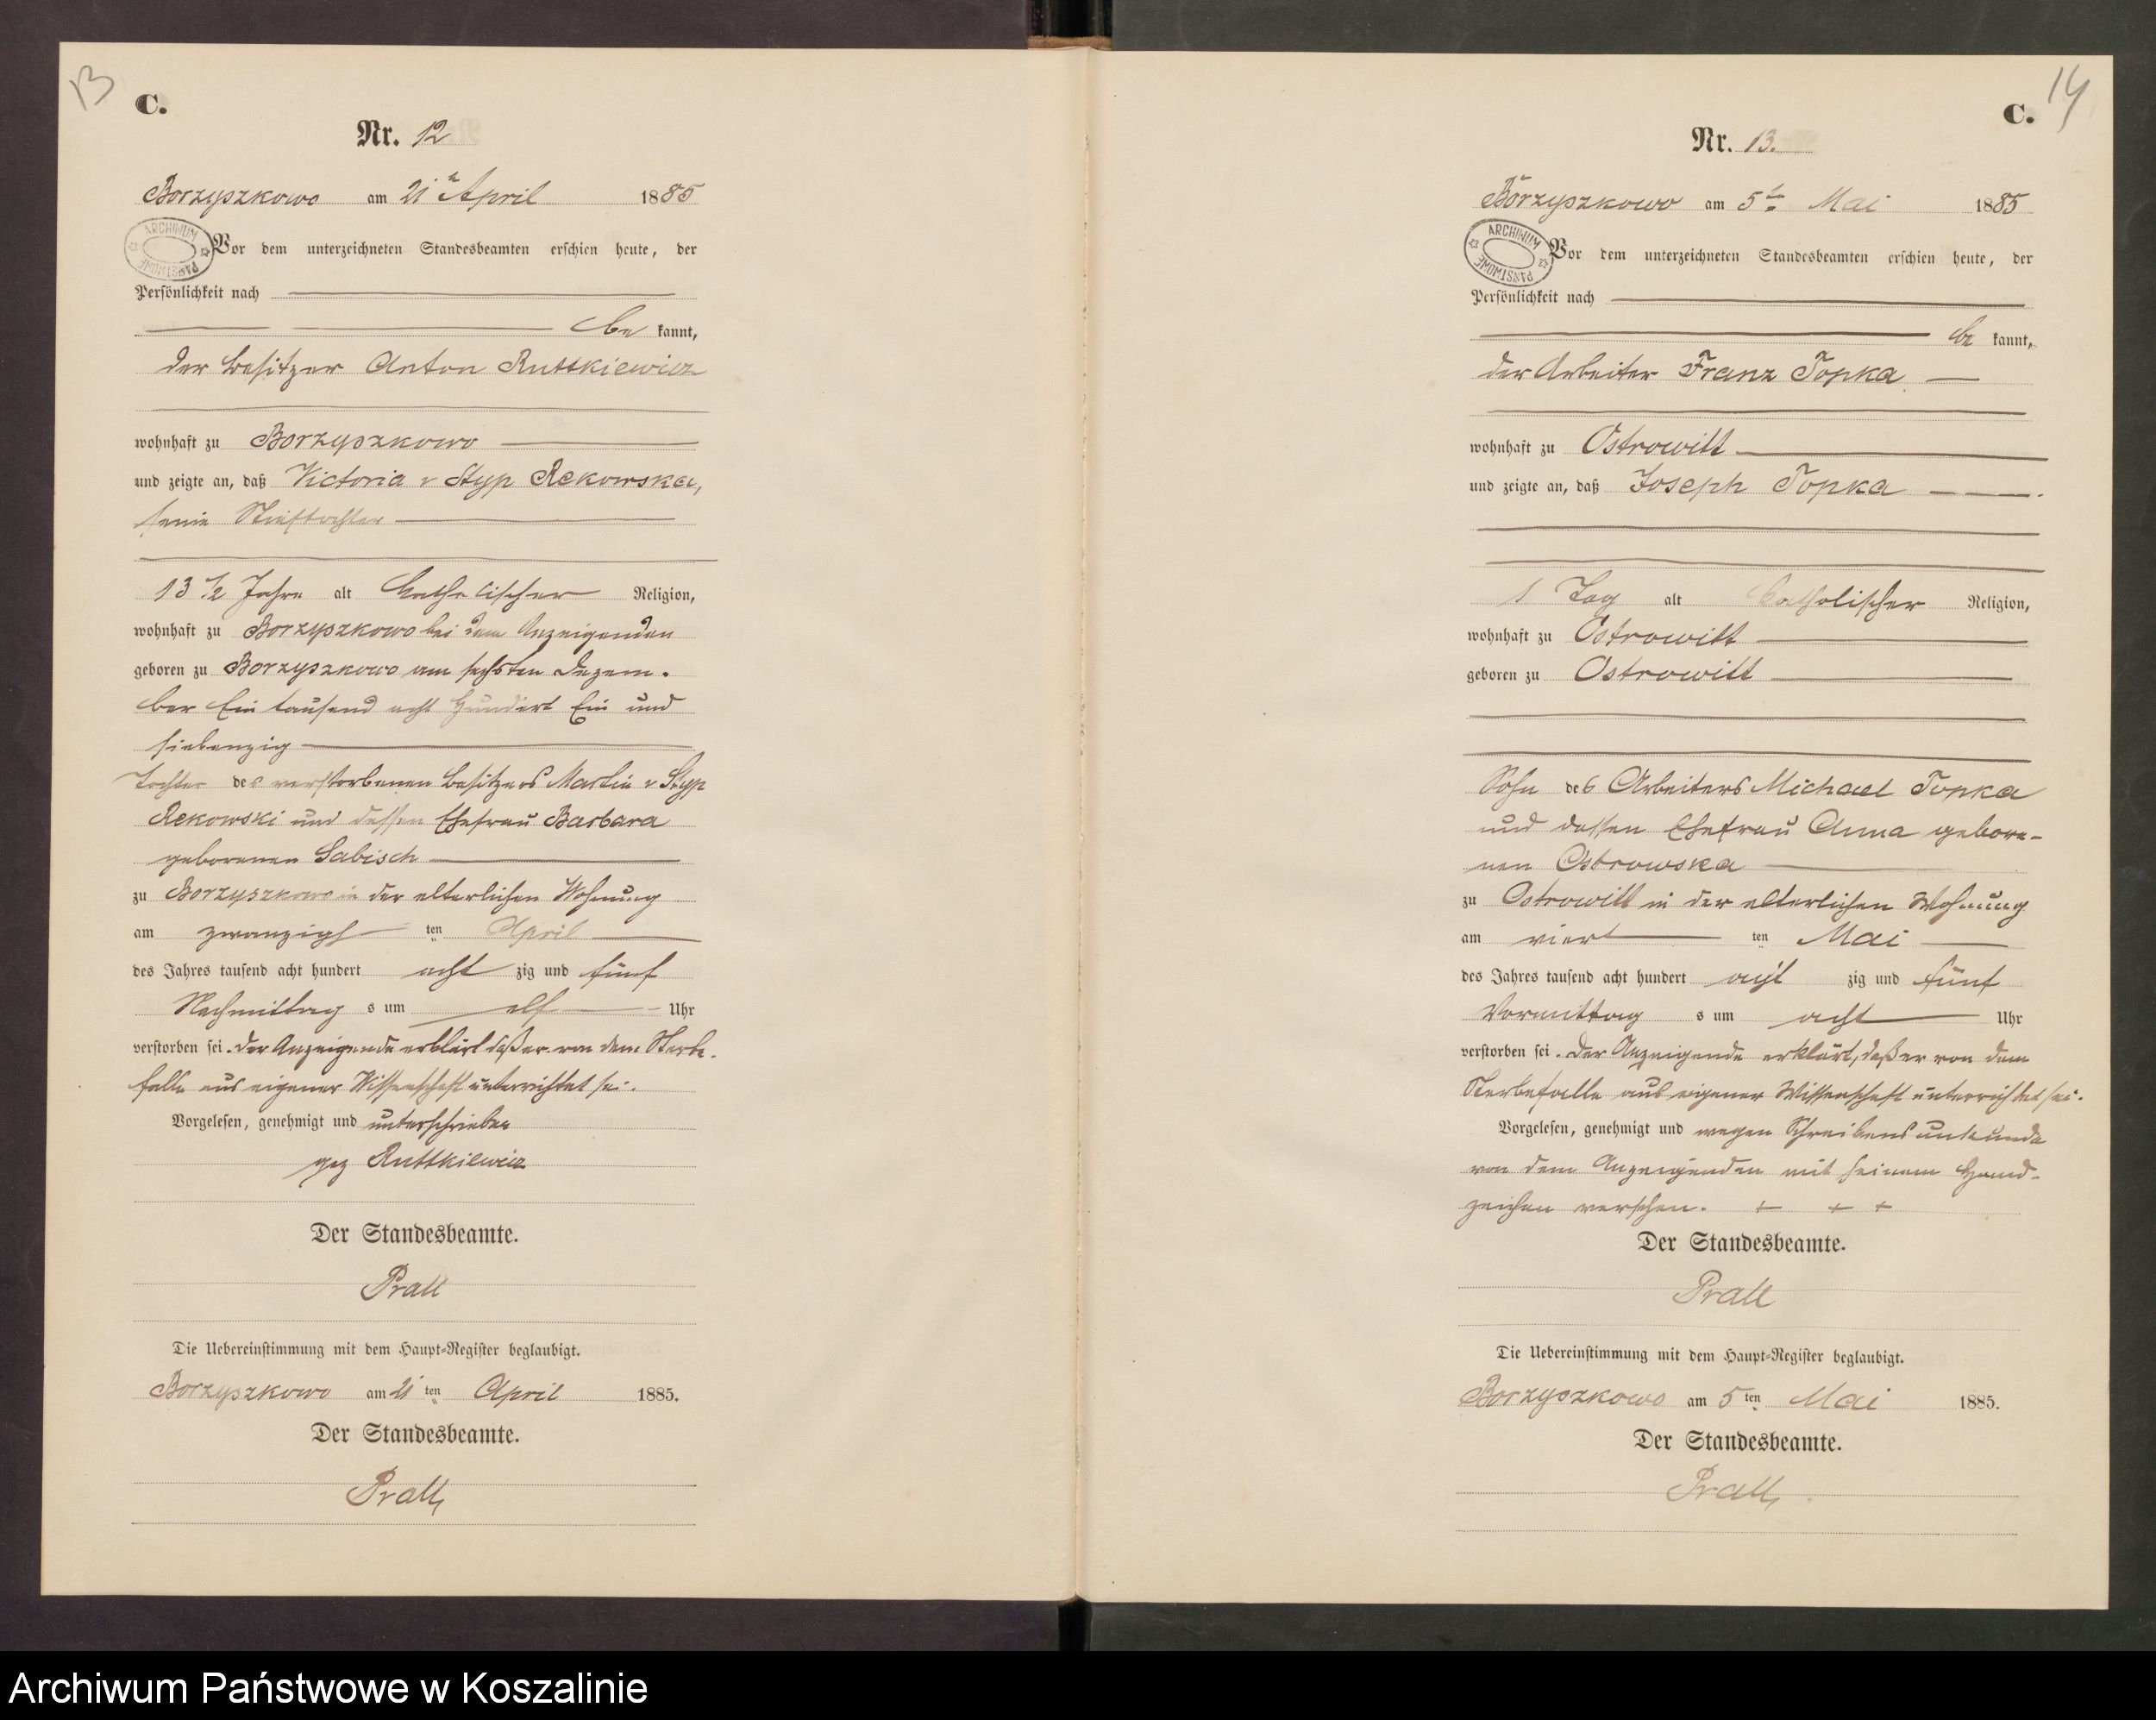 13
C.
Nr. 12
Borzyszkowo am 21ten April 1885
ARCHIWUM PAŃSTWOWE
Vor dem unterzeichneten Standesbeamten erschien heute, der
Persönlichkeit nach
be kannt,
der Besitzer Anton Ruttkiewicz
wohnhaft zu Borzyszkowo
und zeigte an, daß Victoria v Styp Rekowska,
seine Stieftochter
13 1/2 Jahre alt katholischer Religion,
wohnhaft zu Borzyszkowo bei dem Anzeigenden
geboren zu Borzyszkowo am sechsten Dezem-
ber Ein tausend acht hundert Ein und
siebenzig
Tochter des verstorbenen Besitzers Martin v Styp
Rekowski und dessen Ehefrau Barbara
geborenen Sabisch
zu Borzyszkowo in der elterlichen Wohnung
am zwanzigs ten April
des Jahres tausend acht hundert acht zig und fünf
Nachmittag s um elf Uhr
verstorben sei. Der Anzeigende erklärt daß er von dem Sterbe-
falle aus eigener Wissenschaft unterrichtet sei.
Vorgelesen, genehmigt und unterschrieben
gez Ruttkiewicz
Der Standesbeamte.
Prall
Die Uebereinstimmung mit dem Haupt-Register beglaubigt.
Borzyszkowo am 21 ten April 1885.
Der Standesbeamte.
Prall,
14
C.
Nr. 13.
Borzyszkowo am 5ten Mai 1885
ARCHIWUM PAŃSTWOWE
Vor dem unterzeichneten Standesbeamten erschien heute, der
Persönlichkeit nach
be kannt,
der Arbeiter Franz Topka
wohnhaft zu Ostrowitt
und zeigte an, daß Joseph Topka
1 Tag alt katholischer Religion,
wohnhaft zu Ostrowitt
geboren zu Ostrowitt
Sohn des Arbeiters Michael Topka
und dessen Ehefrau Anna gebore-
nen Ostrowska
zu Ostrowitt in der elterlichen Wohnung
am viert ten Mai
des Jahres tausend acht hundert acht zig und fünf
Vormittag s um acht Uhr
verstorben sei. Der Anzeigende erklärt, daß er von dem
Sterbefalle aus eigener Wissenschaft unterrichtet sei.
Vorgelesen, genehmigt und wegen Schreibensunkunde
von dem Anzeigenden mit seinem Hand-
zeichen versehen. + + +
Der Standesbeamte.
Prall
Die Uebereinstimmung mit dem Haupt-Register beglaubigt.
Borzyszkowo am 5 ten Mai 1885.
Der Standesbeamte.
Prall,
Archiwum Państwowe w Koszalinie